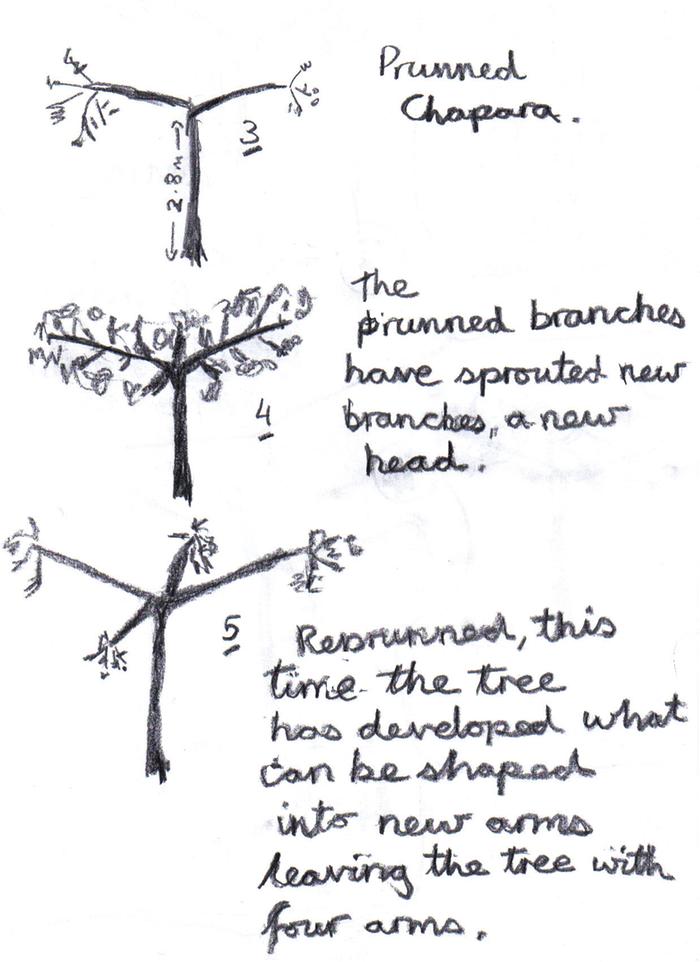 Prunned
Chapara.
3
2.8m
The
prunned branches
have sprouted new
branches, a new
head.
4
5
Reprunned, this
time the tree
has developed what
can be shaped
into new arms
leaving the tree with
four arms.